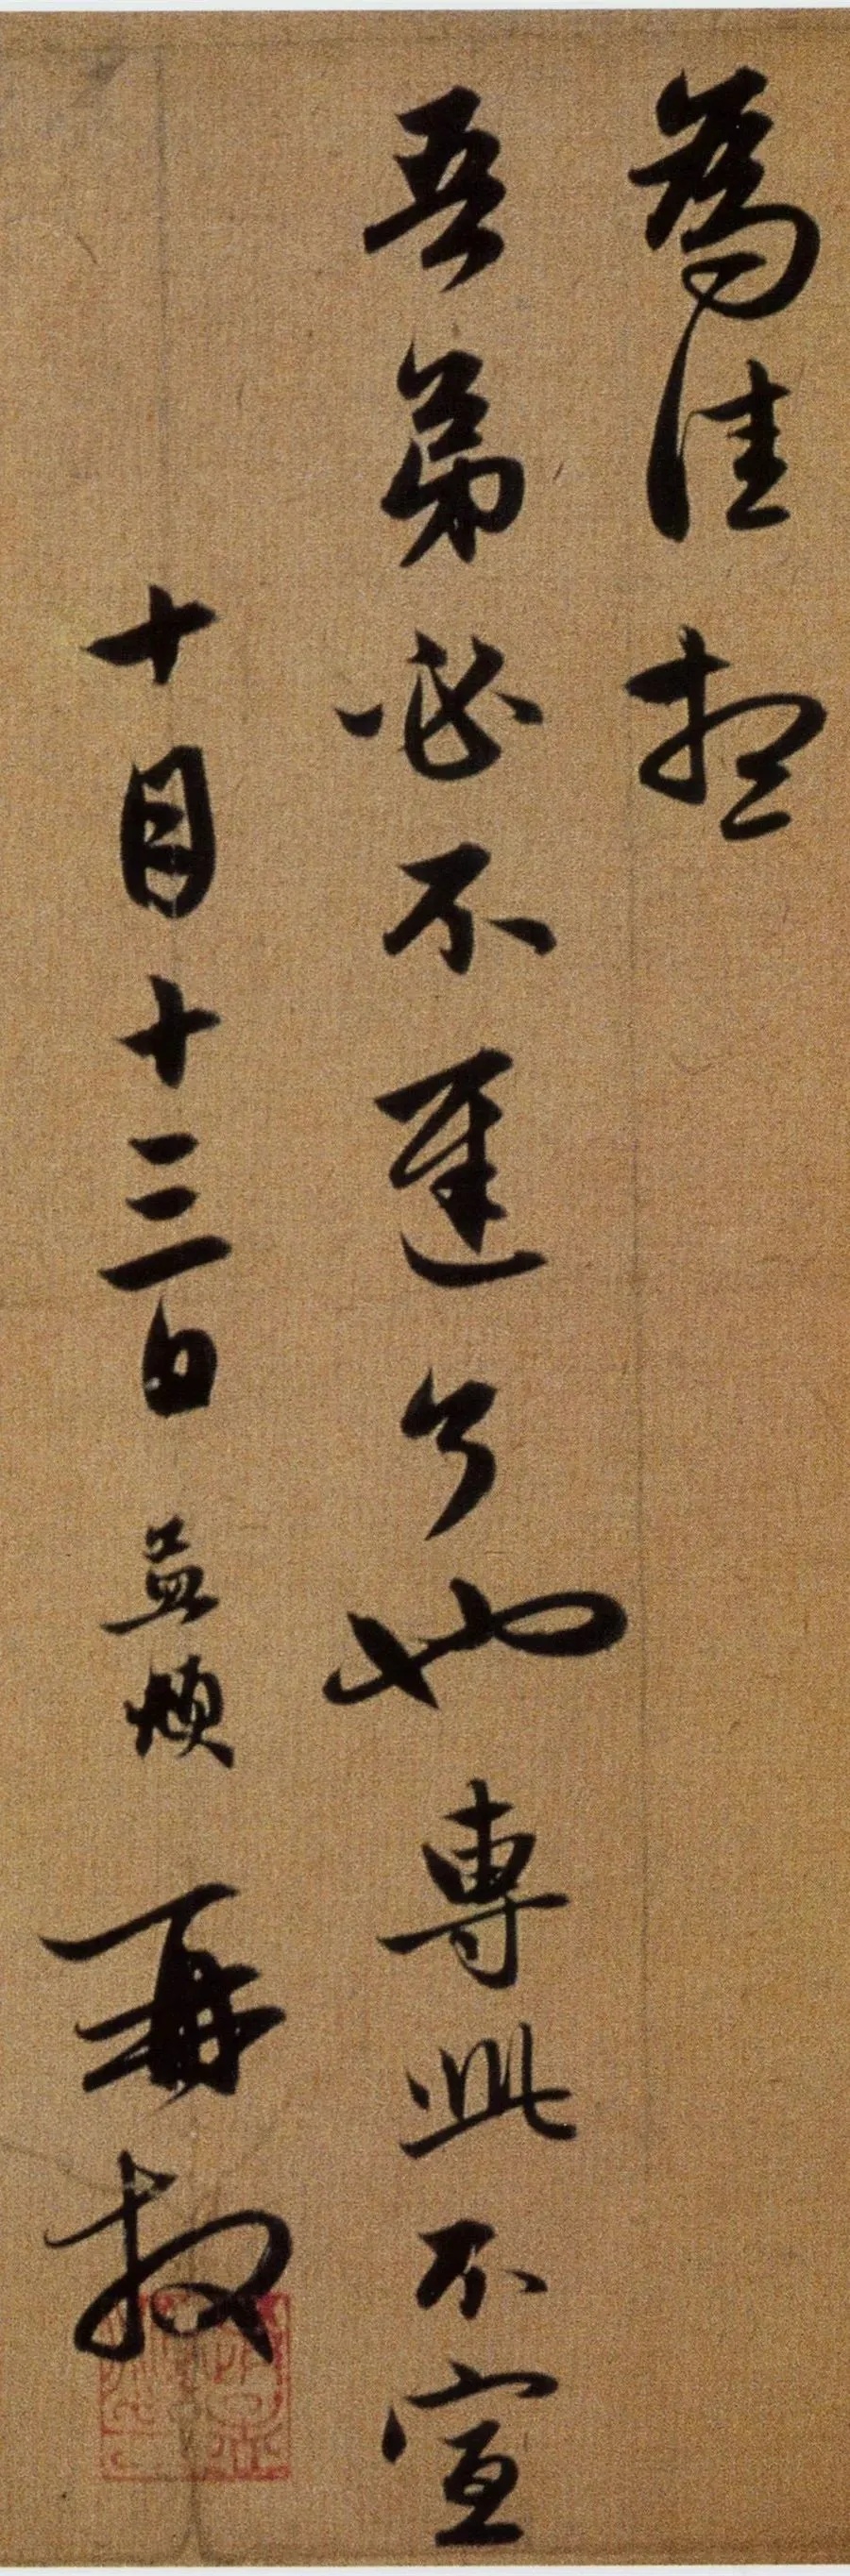 為佳想
吾弟必不遲了也專此不宣
十月十三日益煩再拜